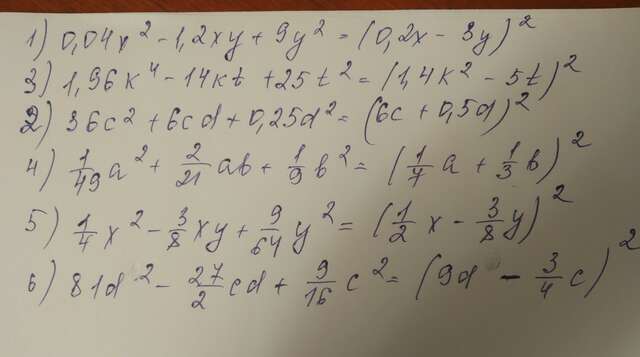 1) 0,04x² - 1,2xy + 9y² = (0,2x - 3y)²
3) 1,96k⁴ - 14kt + 25t² = (1,4k² - 5t)²
2) 36c² + 6cd + 0,25d² = (6c + 0,5d)²
4) 1/49 a² + 2/21 ab + 1/9 b² = (1/7 a + 1/3 b)²
5) 1/4 x² - 3/8 xy + 9/64 y² = (1/2 x - 3/8 y)²
6) 81d² - 27/2 cd + 9/16 c² = (9d - 3/4 c)²